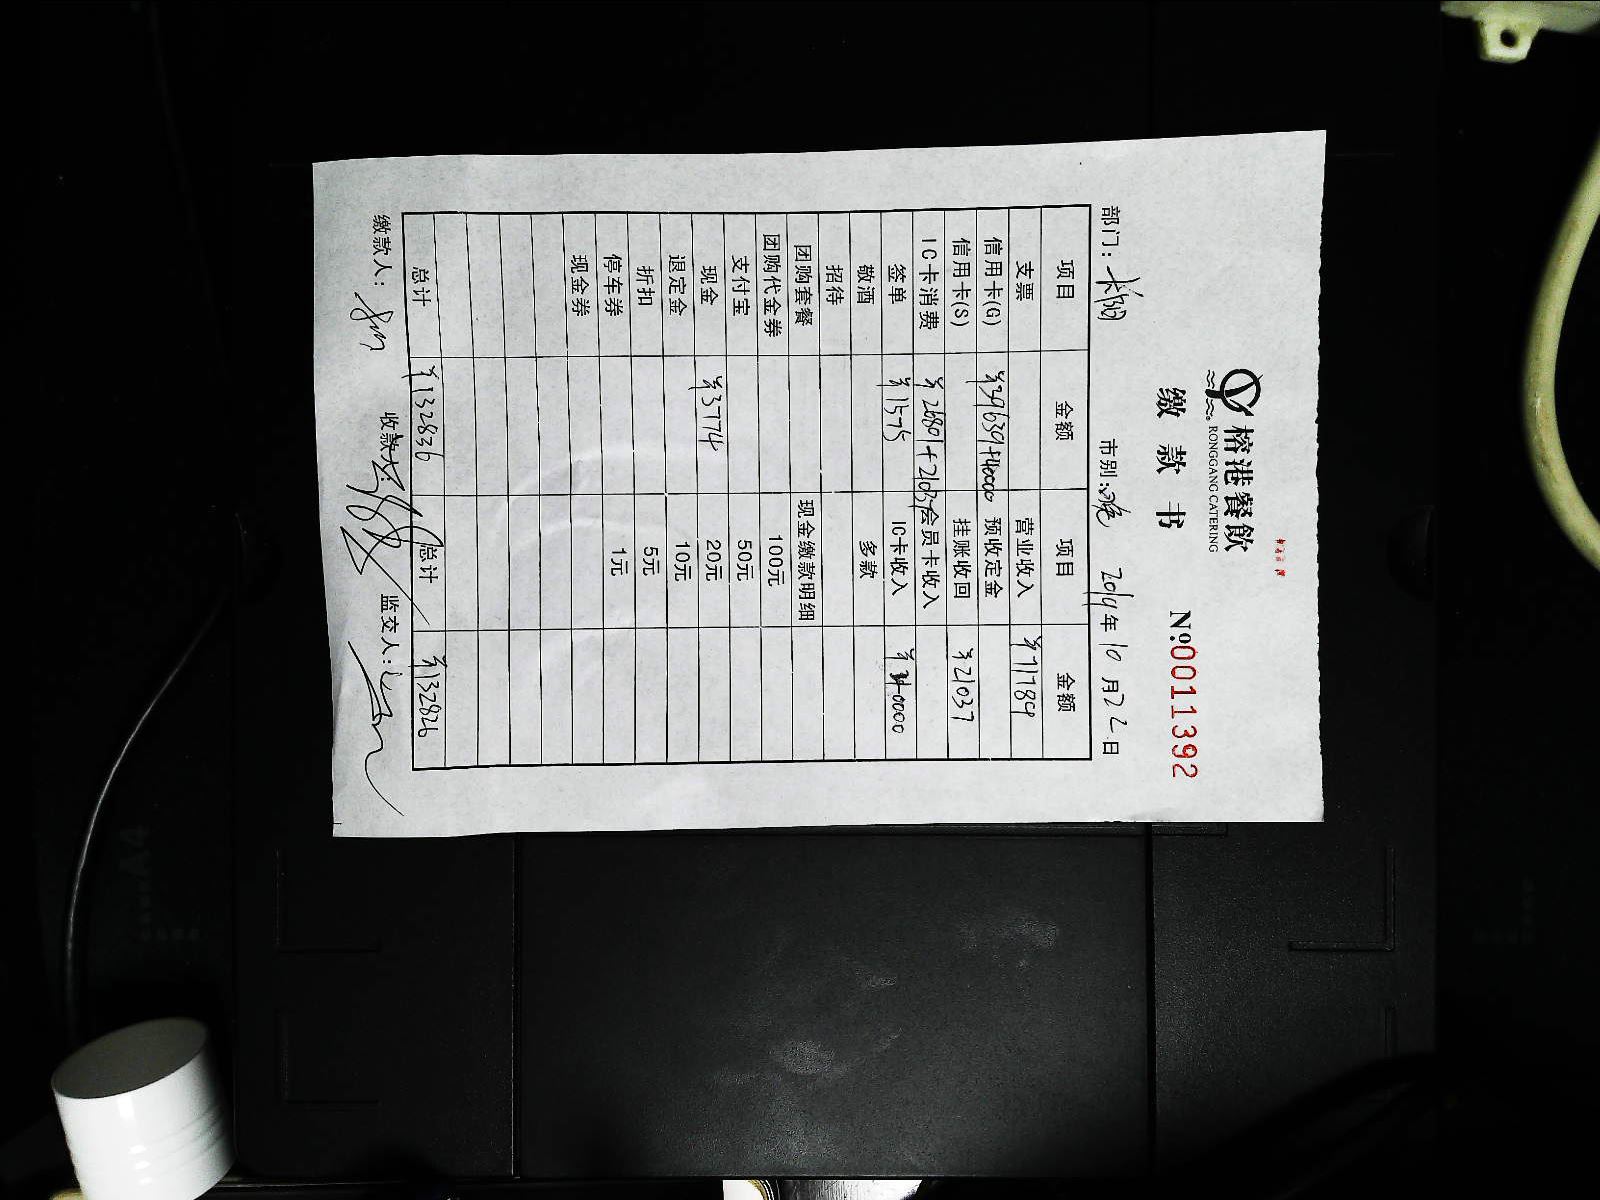 榕港餐飲
RONGGANG CATERING
缴款书
№:0011392
部门: 长阳 市别: 晚 2014年10月22日
项目 金额 项目 金额
支票 营业收入 ¥71789
信用卡(G) ¥39639+40000 预收定金
信用卡(S) 挂账收回 ¥21037
IC卡消费 ¥26801+21037 会员卡收入
签单 ¥1575 IC卡收入 ¥40000
敬酒 多款
招待
团购套餐 现金缴款明细
团购代金券 100元
支付宝 50元
现金 ¥3774 20元
退定金 10元
折扣 5元
停车券 1元
现金券
总计 ¥132836 总计 ¥132826
缴款人: 收款人: 监交人:
A4